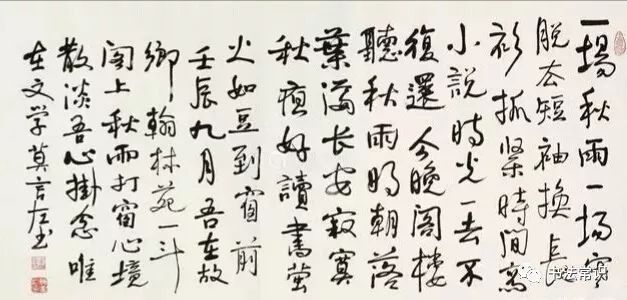 一場秋雨一場寒
脱去短袖換長
衫抓緊時間寫
小說時光一去不
復還今晚阁樓
聽秋雨明朝落
葉滿長安寂寞
秋好讀書螢
火如豆到窗前
壬辰九月吾在故
鄉翰林苑一斗
阁上秋雨打窗心境
散淡吾心掛念唯
在文学莫言左书
书法常识